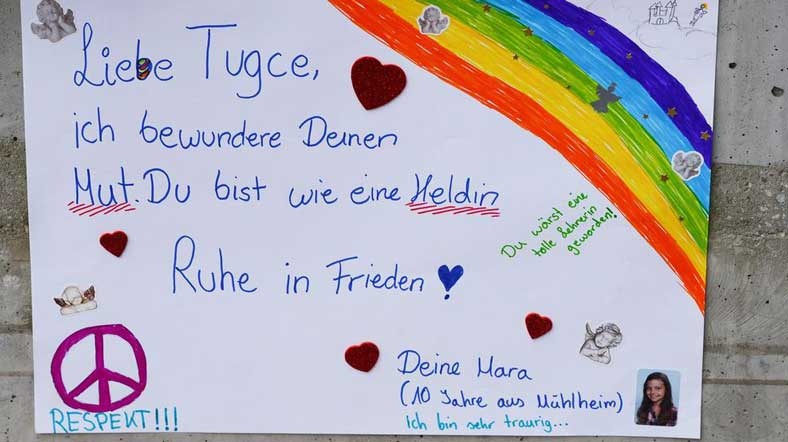 Liebe Tugce,
ich bewundere Deinen
Mut. Du bist wie eine Heldin
Du wärst eine
tolle Lehrerin
geworden!
Ruhe in Frieden!
Deine Mara
(10 Jahre aus Mühlheim)
Ich bin sehr traurig...
RESPEKT!!!